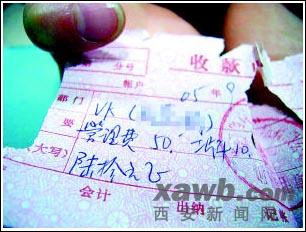 收款
分号
帐户
05 年 9
部门
摘要
管理费 50. 10.
(大写)
陆拾元正
会计 出纳
xawb.com
西安新闻网